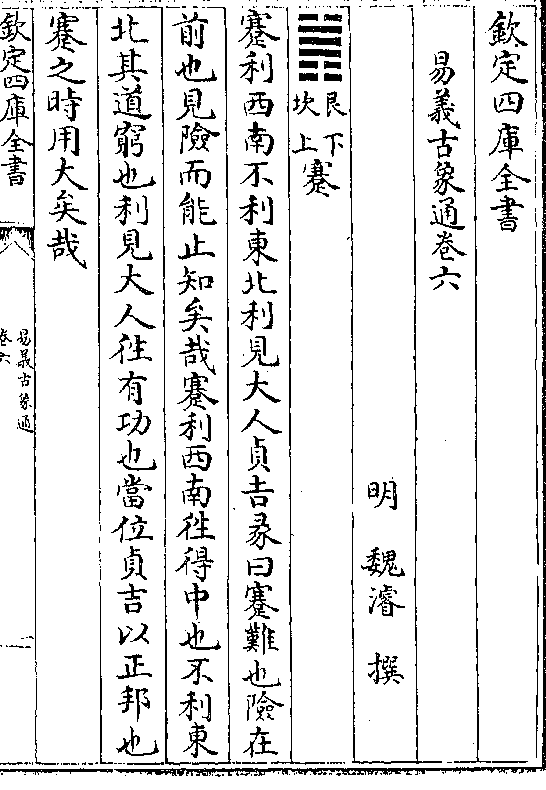 欽定四庫全書
易義古象通卷六
明 魏濬 撰
艮下
坎上
蹇
蹇利西南不利東北利見大人貞吉彖曰蹇難也險在
前也見險而能止知矣哉蹇利西南徃得中也不利東
北其道窮也利見大人徃有功也當位貞吉以正邦也
蹇之時用大矣哉
欽定四庫全書
易義古象通
卷六
一